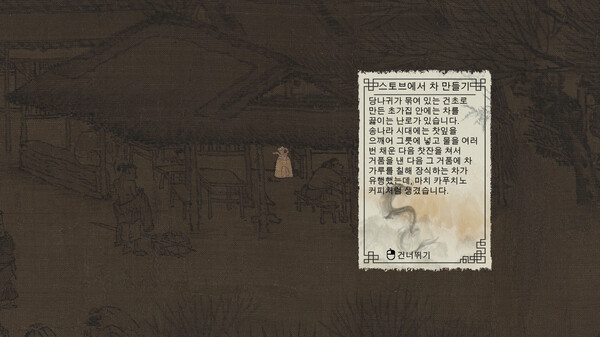 스토브에서 차 만들기
당나귀가 묶여 있는 건초로
만든 초가집 안에는 차를
끓이는 난로가 있습니다.
송나라 시대에는 찻잎을
으깨어 그릇에 넣고 물을 여러
번 채운 다음 찻잔을 쳐서
거품을 낸 다음 그 거품에 차
가루를 칠해 장식하는 차가
유행했는데, 마치 카푸치노
커피처럼 생겼습니다.
건너뛰기